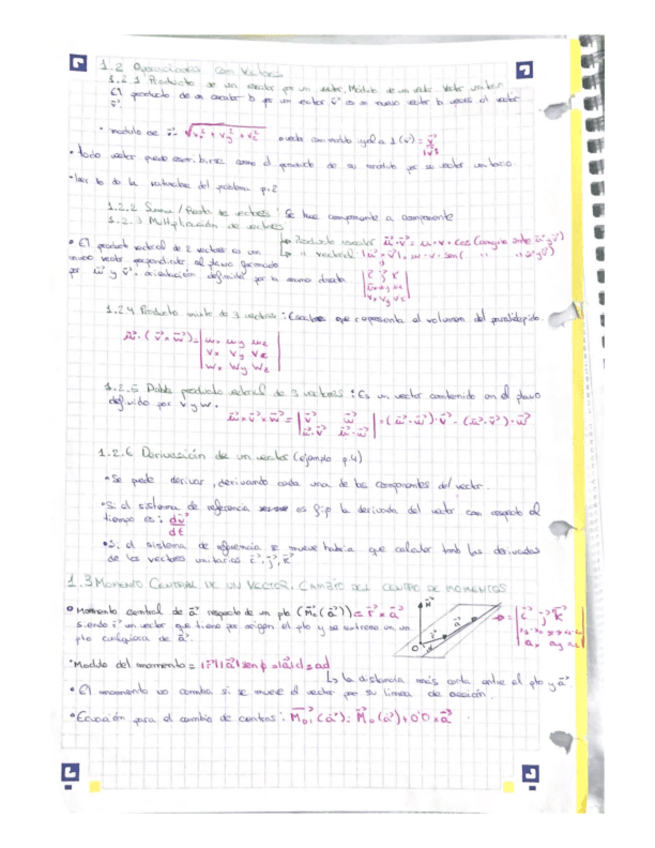 1.2 Operaciones con Vectores
1.2.1 Producto de un escalar por un vector. Módulo de un vector. Vector unitario
El producto de un escalar b por un vector v⃗ es un nuevo vector b veces el vector
v⃗.
• modulo de v⃗ = √(vx² + vy² + vz²) vector con modulo igual a 1 (v⃗) = v⃗/|v⃗|
• todo vector puede escribirse como el producto de su modulo por su vector unitario.
• leer lo de la naturaleza del problema p.2
1.2.2 Suma / Resta de vectores : Se hace componente a componente
1.2.3 Multiplicación de vectores
↳ Producto escalar u⃗·v⃗ = u·v·cos (angulo entre u⃗ y v⃗)
↳ " vectorial |u⃗×v⃗| = u·v·sen ( " " u⃗ y v⃗)
• El producto vectorial de 2 vectores es un
nuevo vector perpendicular al plano formado
por u⃗ y v⃗. orientación definida por la mano derecha
|i⃗ j⃗ k⃗|
|ux uy uz|
|vx vy vz|
1.2.4 Producto mixto de 3 vectores : Escalar que representa el volumen del paralelépido.
u⃗·(v⃗×w⃗) = |ux uy uz|
|vx vy vz|
|wx wy wz|
1.2.5 Doble producto vectorial de 3 vectores : Es un vector contenido en el plano
definido por v y w.
u⃗×v⃗×w⃗ = |v⃗ w⃗| = (u⃗·w⃗)·v⃗ - (u⃗·v⃗)·w⃗
|u⃗·v⃗ u⃗·w⃗|
1.2.6 Derivación de un vector (ejemplo p.4)
• Se puede derivar, derivando cada una de las componentes del vector.
• Si el sistema de referencia es fijo la derivada del vector con respecto al
tiempo es: dv⃗/dt
• Si el sistema de referencia se mueve habria que calcular tmb las derivadas
de los vectores unitarios i⃗, j⃗, k⃗
1.3 MOMENTO CENTRAL DE UN VECTOR. CAMBIO DEL CENTRO DE MOMENTOS
• Momento central de a⃗ respecto de un pto (M⃗o(a⃗)) = r⃗ × a⃗
siendo r⃗ un vector que tiene por origen el pto y se extremo en un
pto cualquiera de a⃗.
M⃗
r⃗ a⃗
O
i⃗ j⃗ k⃗
ax ay az
• Modulo del momento = |r⃗||a⃗| sen φ = |a| d = ad
↳ la distancia más corta entre el pto y a⃗.
• El momento no cambia si se mueve el vector por su linea de acción.
• Ecuación para el cambio de centros : M⃗o'(a⃗) = M⃗o(a⃗) + O'O × a⃗